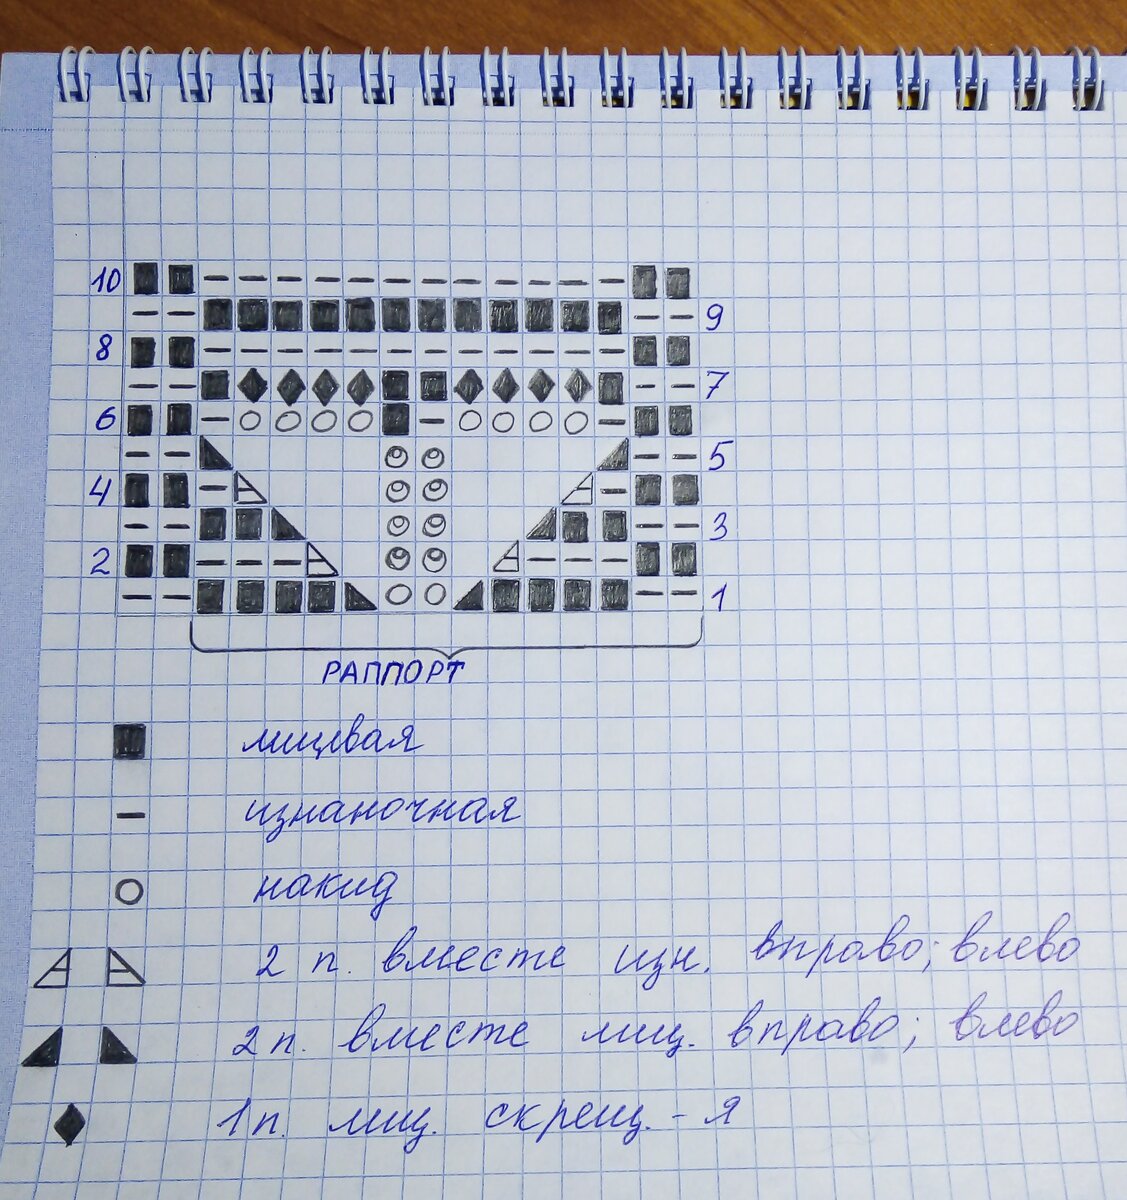 10
9
8
7
6
5
4
3
2
1
РАППОРТ
лицевая
изнаночная
накид
2 п. вместе изн. вправо; влево
2 п. вместе лиц. вправо; влево
1 п. лиц. скрещ.-я